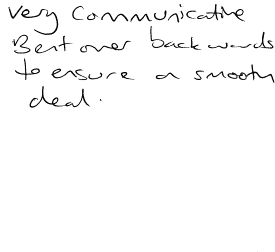 Very Communicative
Bent over backwards
to ensure a smooth
deal.